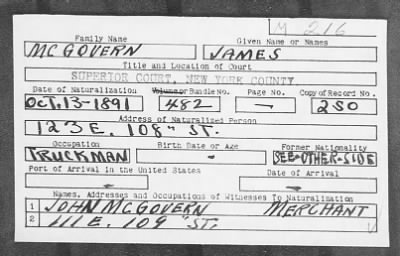 M 216
Family Name Given Name or Names
MCGOVERN JAMES
Title and Location of Court
SUPERIOR COURT, NEW YORK COUNTY.
Date of Naturalization Volume or Bundle No. Page No. Copy of Record No.
OCT. 13-1891 482 — 250
Address of Naturalized Person
123 E. 108" ST.
Occupation Birth Date or Age Former Nationality
TRUCKMAN - SEE-OTHER-SIDE
Port of Arrival in the United States Date of Arrival
- -
Names, Addresses and Occupations of Witnesses To Naturalization
1 JOHN MCGOVERN MERCHANT
2 111 E. 109" ST.